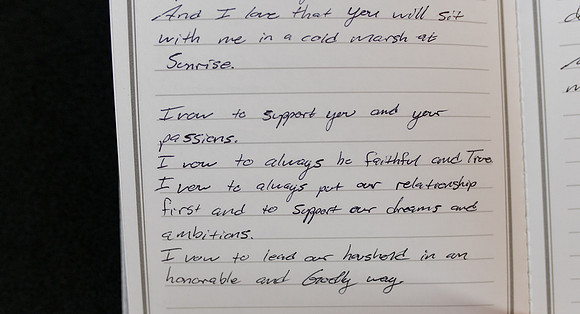 And I love that you will sit
with me in a cold marsh at
Sunrise.
I vow to support you and your
passions.
I vow to always be faithful and True
I vow to always put our relationship
first and to support our dreams and
ambitions.
I vow to lead our houshold in an
honorable and Goodly way.